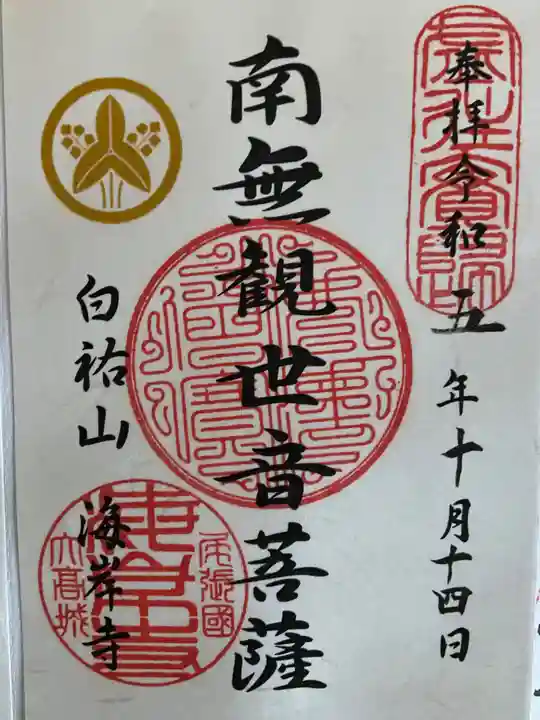 奉拝令和五年十月十四日
南無観世音菩薩
白祐山
海岸寺
尾張國
大高城